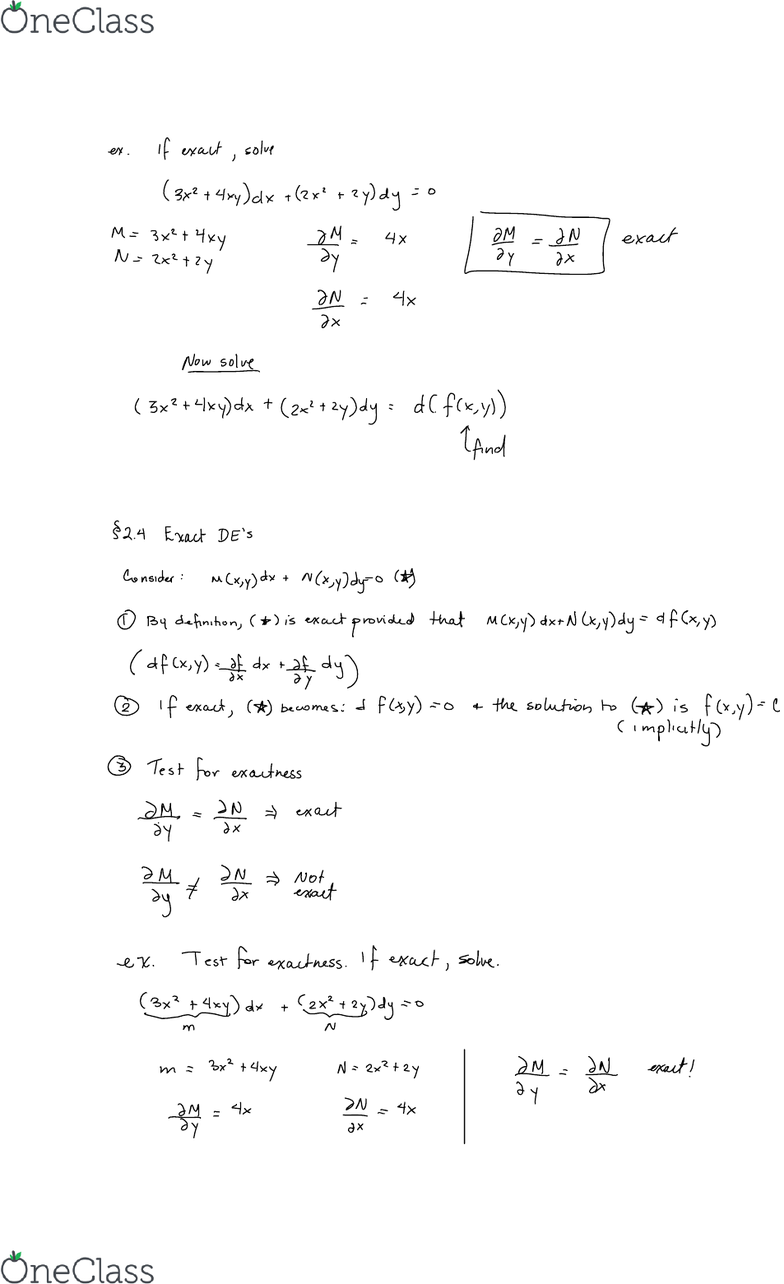 OneClass
ex. If exact, solve
(3x² + 4xy)dx + (2x² + 2y)dy = 0
M = 3x² + 4xy ∂M/∂y = 4x ∂M/∂y = ∂N/∂x exact
N = 2x² + 2y
∂N/∂x = 4x
Now solve
(3x² + 4xy)dx + (2x² + 2y)dy = d(f(x,y))
↑ find
§2.4 Exact DE's
Consider: M(x,y)dx + N(x,y)dy=0 (★)
① By definition, (★) is exact provided that M(x,y)dx+N(x,y)dy = df(x,y)
(df(x,y) = ∂f/∂x dx + ∂f/∂y dy)
② If exact, (★) becomes: d f(x,y) = 0 + the solution to (★) is f(x,y) = C
(implicitly)
③ Test for exactness
∂M/∂y = ∂N/∂x ⇒ exact
∂M/∂y ≠ ∂N/∂x ⇒ Not exact
ex. Test for exactness. If exact, solve.
(3x² + 4xy)dx + (2x² + 2y)dy = 0
m N
m = 3x² + 4xy N = 2x² + 2y ∂M/∂y = ∂N/∂x exact!
∂M/∂y = 4x ∂N/∂x = 4x
OneClass